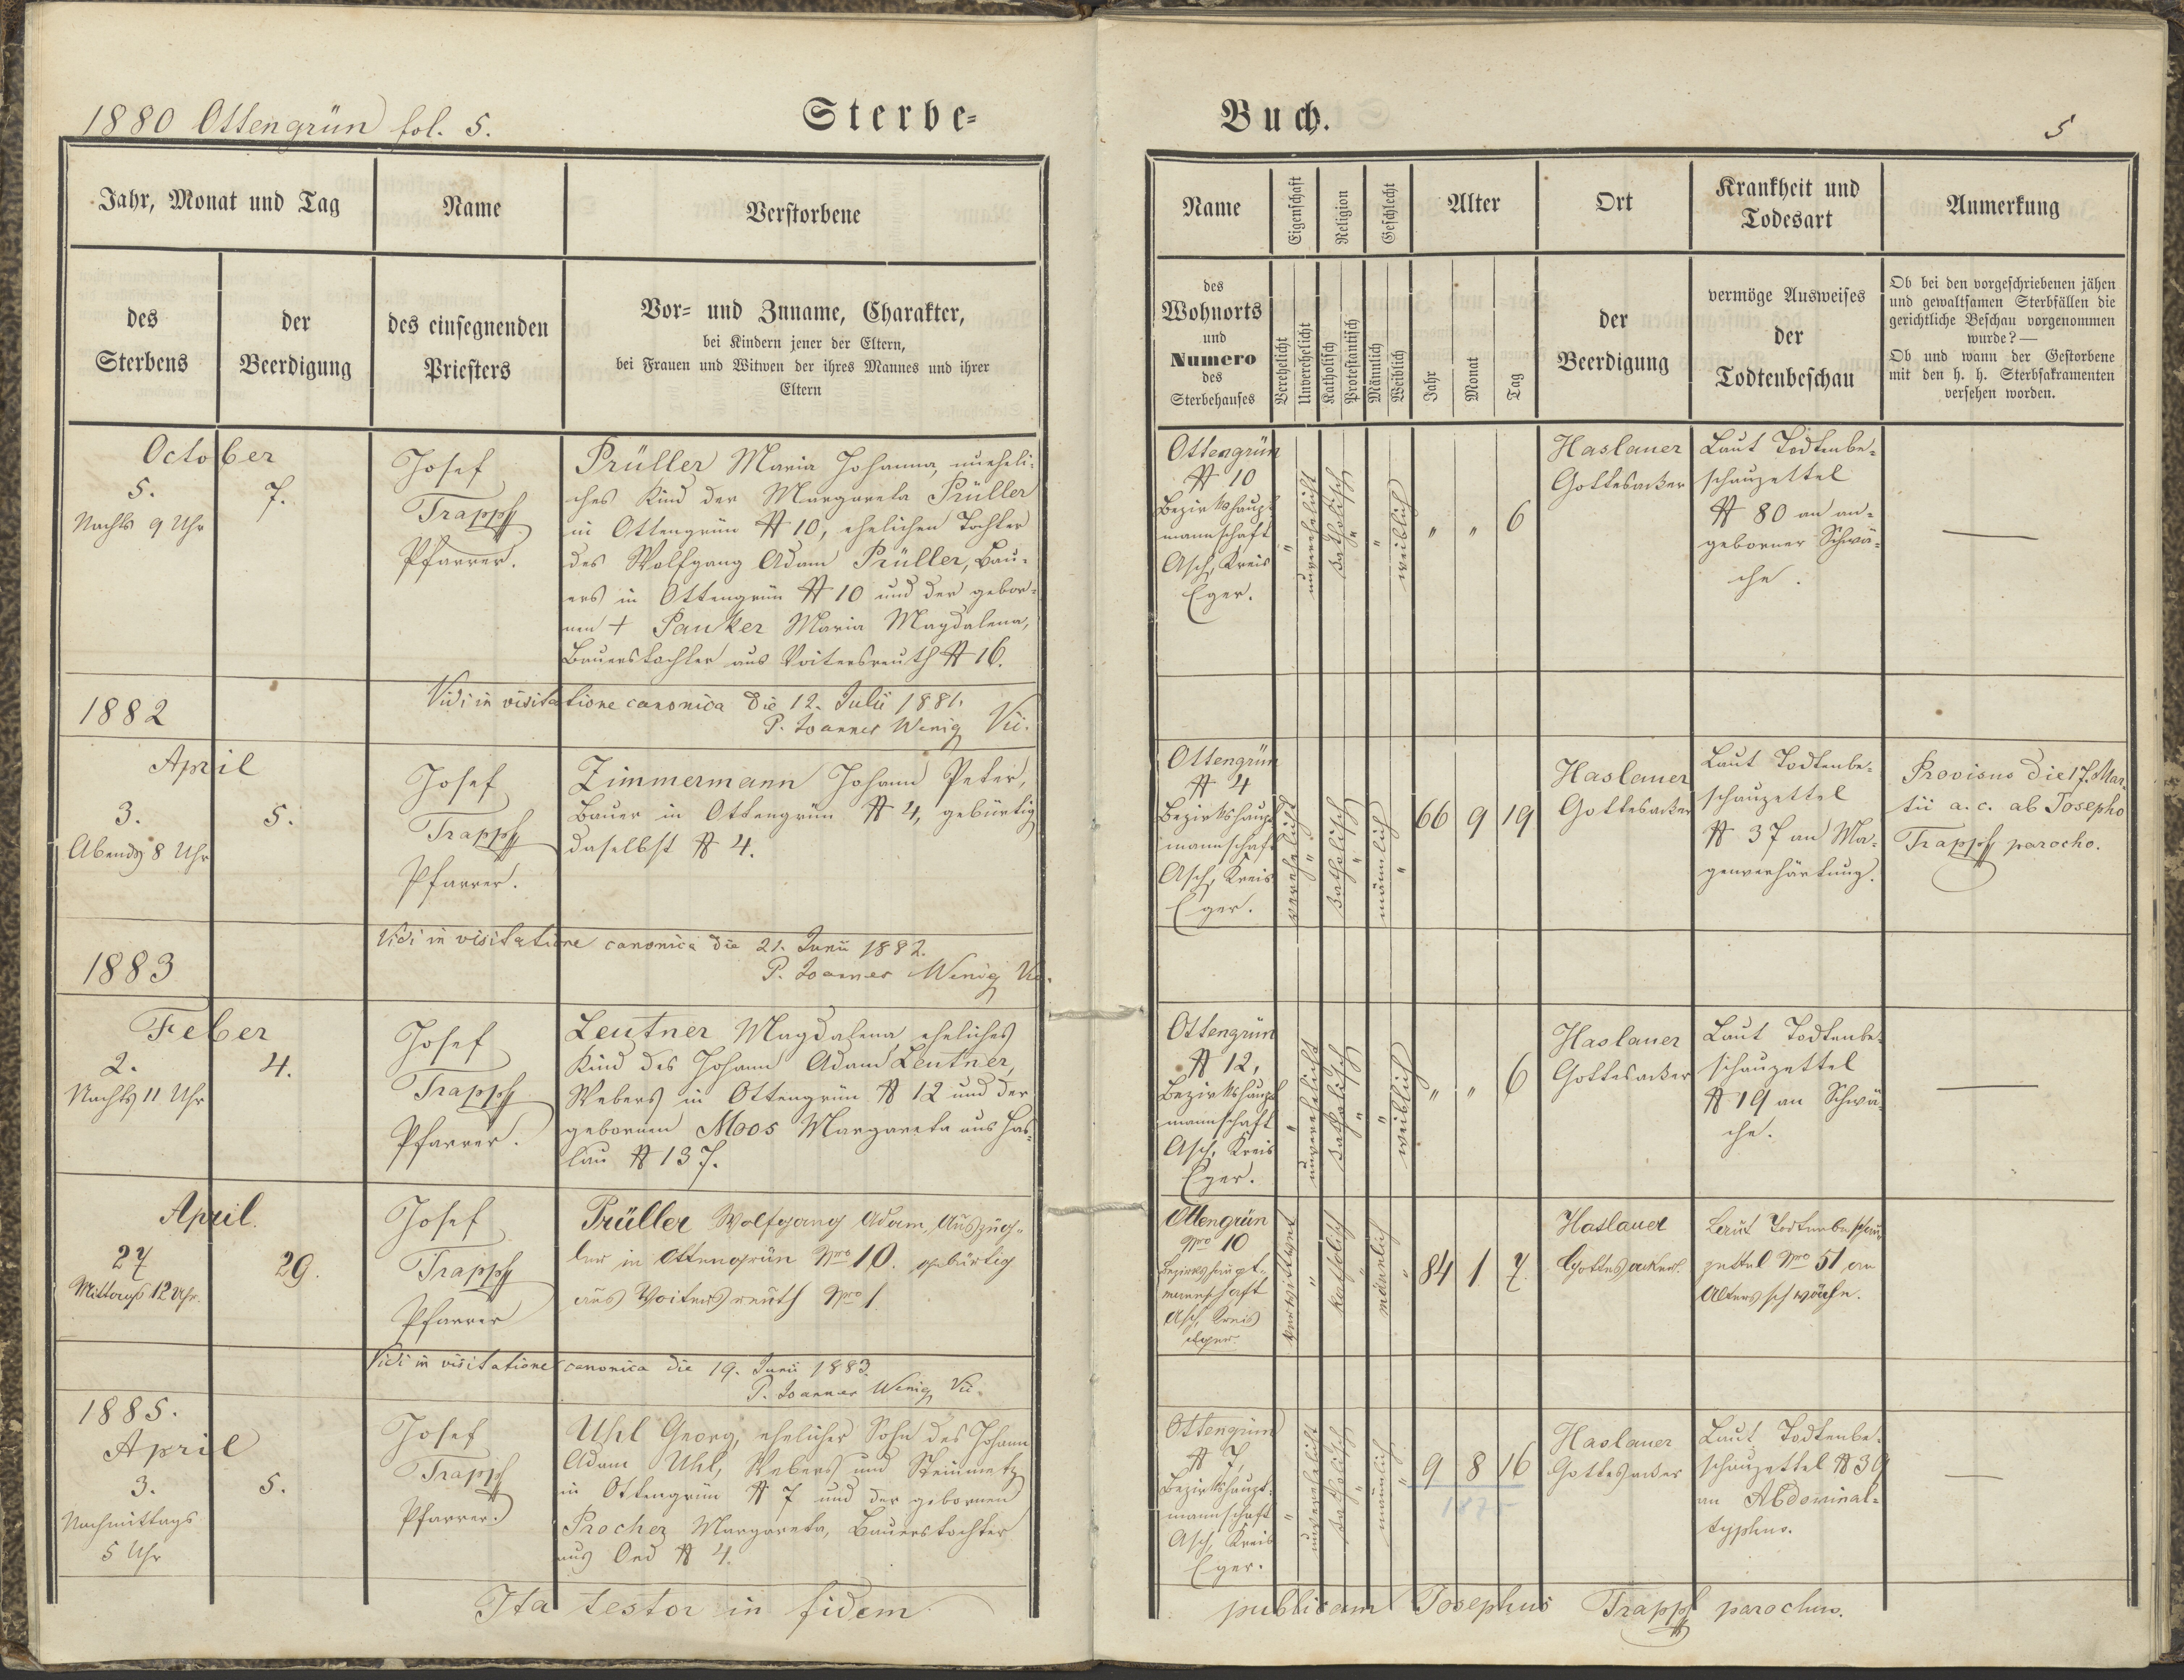 1880 Ottengrün fol. 5.
Sterbe-
Jahr, Monat und Tag
Name
Verstorbene
des
Sterbens
der
Beerdigung
des einsegnenden
Priesters
Vor- und Zuname, Charakter,
bei Kindern jener der Eltern,
bei Frauen und Witwen der ihres Mannes und ihrer
Eltern
October
5.
7.
Nachts 9 Uhr
Josef
Trapp
Pfarrer.
Prüller Maria Johanna, uneheli-
ches Kind der Margareta Prüller
in Ottengrün N 10, ehelichen Tochter
des Wolfgang Adam Prüller, Bau-
ers in Ottengrün N 10 und der gebor-
nen + Pauker Maria Magdalena,
Bauerstochter aus Voitersreuth N 16.
Vidi in visitatione canonica die 12. Julii 1881.
P. Joannes Wenig Vic.
1882
April
3.
5.
Abends 8 Uhr
Josef
Trapp
Pfarrer.
Zimmermann Johann Peter,
Bauer in Ottengrün N 4, gebürtig
daselbst N 4.
Vidi in visitatione canonica die 21. Junii 1882.
P. Joannes Wenig Vic.
1883
Feber
2.
4.
Nachts 11 Uhr
Josef
Trapp
Pfarrer.
Leutner Magdalena, eheliches
Kind des Johann Adam Leutner,
Webers in Ottengrün N 12 und der
gebornen Moos Margareta aus Has-
lau N 137.
April.
27
29.
Mittags 12 Uhr.
Josef
Trapp
Pfarrer
Prüller Wolfgang Adam, Auszüg-
ler in Ottengrün Nro 10. gebürtig
aus Voitersreuth Nro 1
Vidi in visitatione canonica die 19. Junii 1883.
P. Joannes Wenig Vic.
1885.
April
3.
5.
Nachmittags
5 Uhr
Josef
Trapp
Pfarrer.
Uhl Georg, ehelicher Sohn des Johann
Adam Uhl, Webers und Steinmetz
in Ottengrün N 7 und der gebornen
Procher Margareta, Bauerstochter
aus Oed N 4.
Ita testor in fidem
Buch.
5
Name
Eigenschaft
Religion
Geschlecht
Alter
Ort
Krankheit und
Todesart
Anmerkung
des
Wohnorts
und
Numero
des
Sterbehauses
Verehelicht
Unverehelicht
Katholisch
Protestantisch
Männlich
Weiblich
Jahr
Monat
Tag
der
Beerdigung
vermöge Ausweises
der
Todtenbeschau
Ob bei den vorgeschriebenen jähen
und gewaltsamen Sterbfällen die
gerichtliche Beschau vorgenommen
wurde? —
Ob und wann der Gestorbene
mit den h. h. Sterbsakramenten
versehen worden.
Ottengrün
N 10
Bezirkshaupt-
mannschaft
Asch, Kreis
Eger.
"
unverehelicht
katholisch
"
"
weiblich
" " 6
Haslauer
Gottesacker
Laut Todtenbe-
schauzettel
N 80 an an-
geborner Schwä-
che.
—
Ottengrün
N 4
Bezirkshaupt-
mannschaft
Asch, Kreis
Eger.
verehelicht
"
katholisch
"
männlich
"
66 9 19
Haslauer
Gottesacker
Laut Todtenbe-
schauzettel
N 37 an Ma-
genverhärtung.
Provisus die 17. Mar-
tii a. c. ab Josepho
Trapp parocho.
Ottengrün
N 12,
Bezirkshaupt-
mannschaft
Asch, Kreis
Eger.
"
unverehelicht
katholisch
"
"
weiblich
" " 6
Haslauer
Gottesacker
Laut Todtenbe-
schauzettel
N 19 an Schwä-
che.
—
Ottengrün
Nro 10
Bezirkshaupt-
mannschaft
Asch, Kreis
Eger.
verwittwet
"
katholisch
"
männlich
"
84 1 7.
Haslauer
Gottesacker.
Laut Todtenbeschau-
zettel Nro 51 an
Altersschwäche.
Ottengrün
N 7,
Bezirkshaupt-
mannschaft
Asch, Kreis
Eger.
"
unverehelicht
katholisch
"
männlich
"
9 8 16
1875
Haslauer
Gottesacker
Laut Todtenbe-
schauzettel N 39
an Abdominal-
typhus.
—
publicam Josephus Trapp parochus.